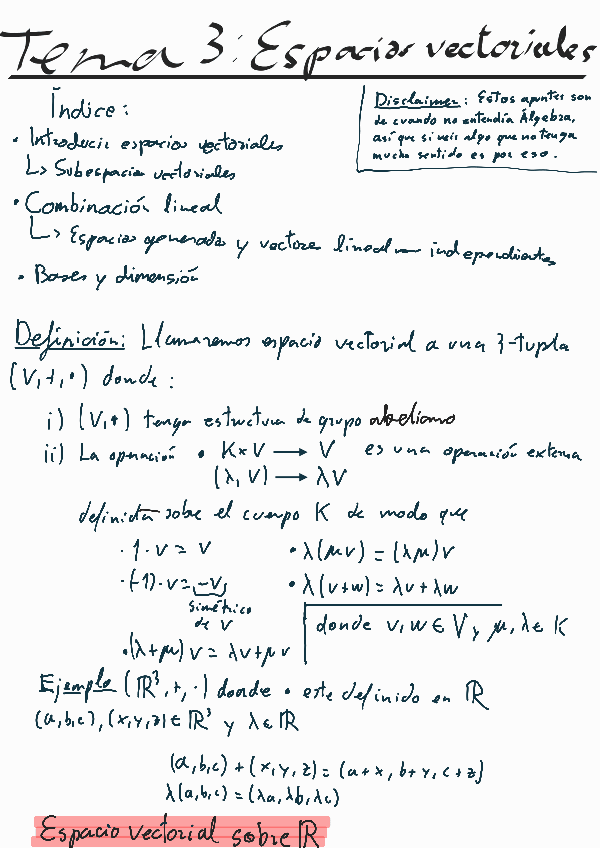 Tema 3: Espacios vectoriales
Índice:
Disclaimer: Estos apuntes son
de cuando no entendía Álgebra,
así que si veis algo que no tenga
mucho sentido es por eso.
• Introducir espacios vectoriales
↳ Subespacios vectoriales
• Combinación lineal
↳ Espacios generados y vectores linealmente independientes
• Bases y dimensión
Definición: Llamaremos espacio vectorial a una 3-tupla
(V,+,·) donde:
i) (V,+) tenga estructura de grupo abeliano
ii) La operación • K×V → V es una operación externa
(λ, V) → λV
definida sobre el cuerpo K de modo que
· 1·v = v
· (-1)·v = -v
simétrico
de v
· (λ+μ)v = λv+μv
• λ(μv) = (λμ)v
• λ(v+w) = λv+λw
donde v,w ∈ V y μ,λ ∈ K
Ejemplo (ℝ³,+,·) donde • este definido en ℝ
(a,b,c),(x,y,z) ∈ ℝ³ y λ ∈ ℝ
(a,b,c)+(x,y,z)=(a+x, b+y, c+z)
λ(a,b,c)=(λa,λb,λc)
Espacio vectorial sobre ℝ